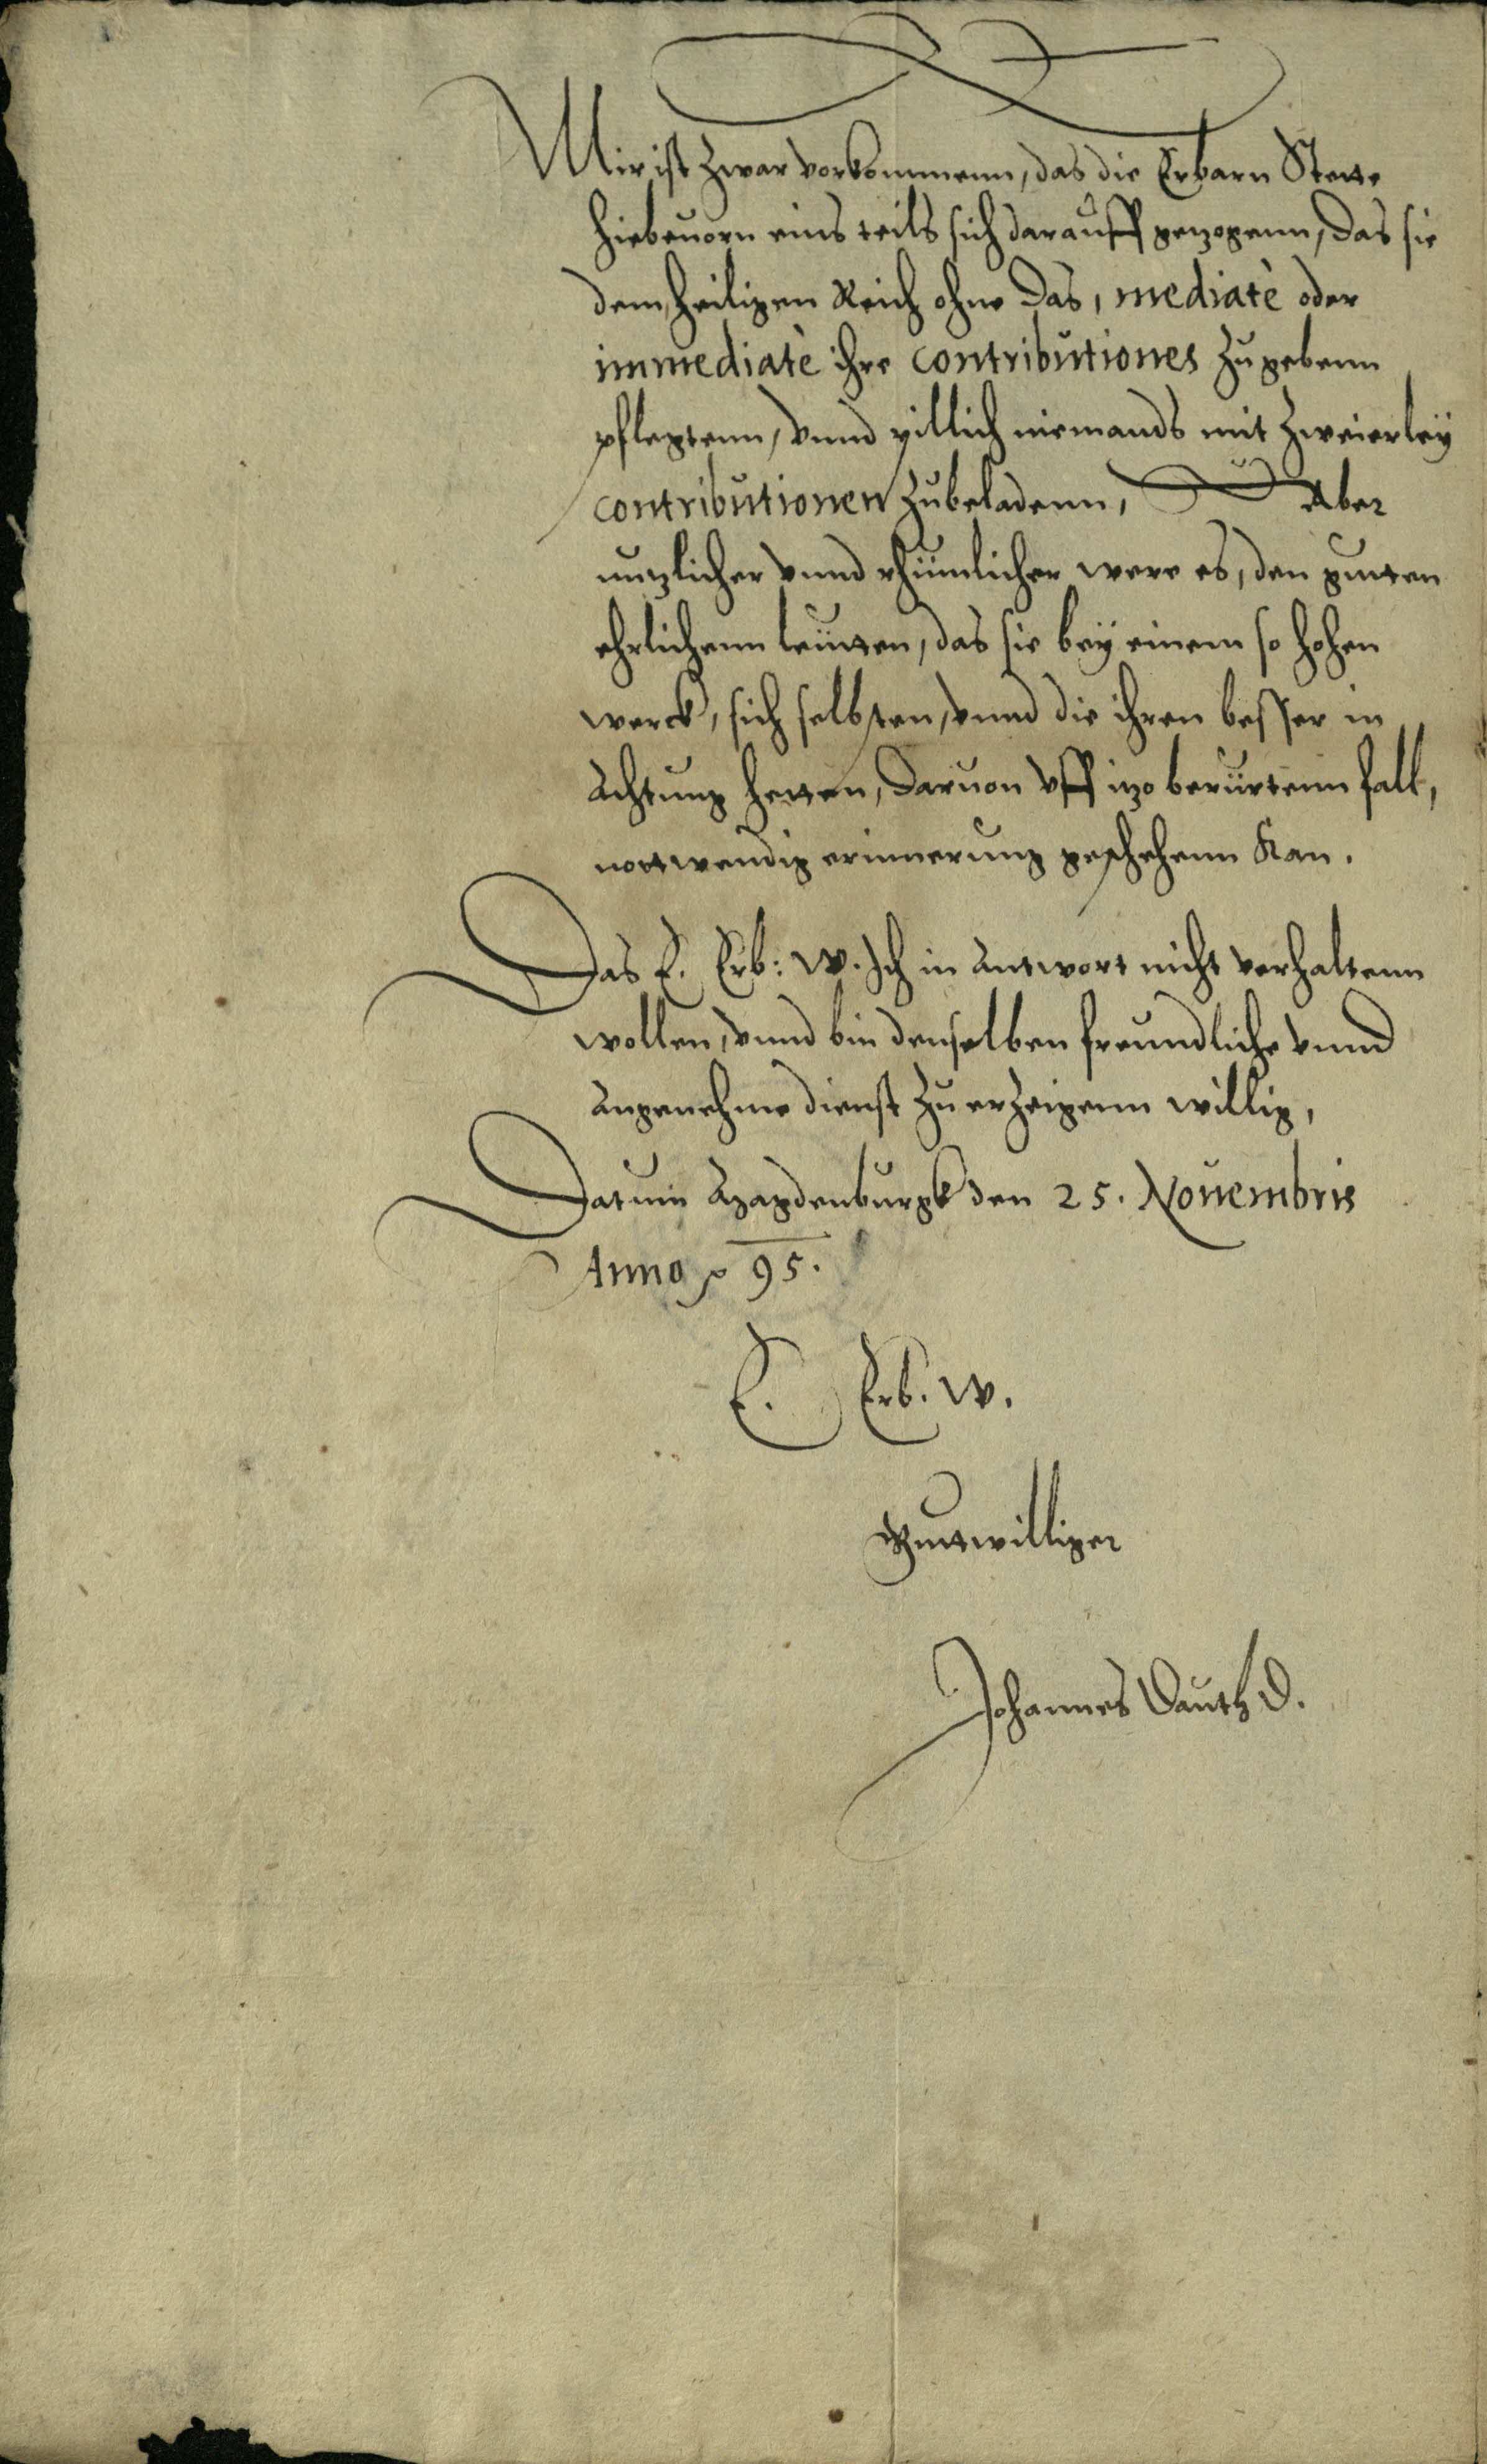 Mir ist zwar vorkommenn, das die Erbarn Stette
hiebeuorn eins teils sich darauff gezogenn, das sie
dem heiligen Reich ohne das, mediatè oder
immediatè ihre contributiones zu gebenn
pflegtenn, vnnd pillich niemands mit zweierley
contributionen zubeladenn, Aber
nuzlicher vnnd rhümlicher were es, den gutten
ehrlichenn leutten, das sie bey einem so hohen
werck, sich selbsten, vnnd die ihren besser in
achtung hetten, daruon vff izo berürtenn fall,
nottwendig erinnerung geschehenn kan.
Das E. Erb: W. Ich in antwort nicht verhaltenn
wollen, vnnd bin denselben freundliche vnnd
angenehme dienst zu erzeigenn willig,
Datum Magdenburgk den 25. Nouembris
Anno 95.
E. Erb. W.
Guttwilliger
Johannes Dauth D.